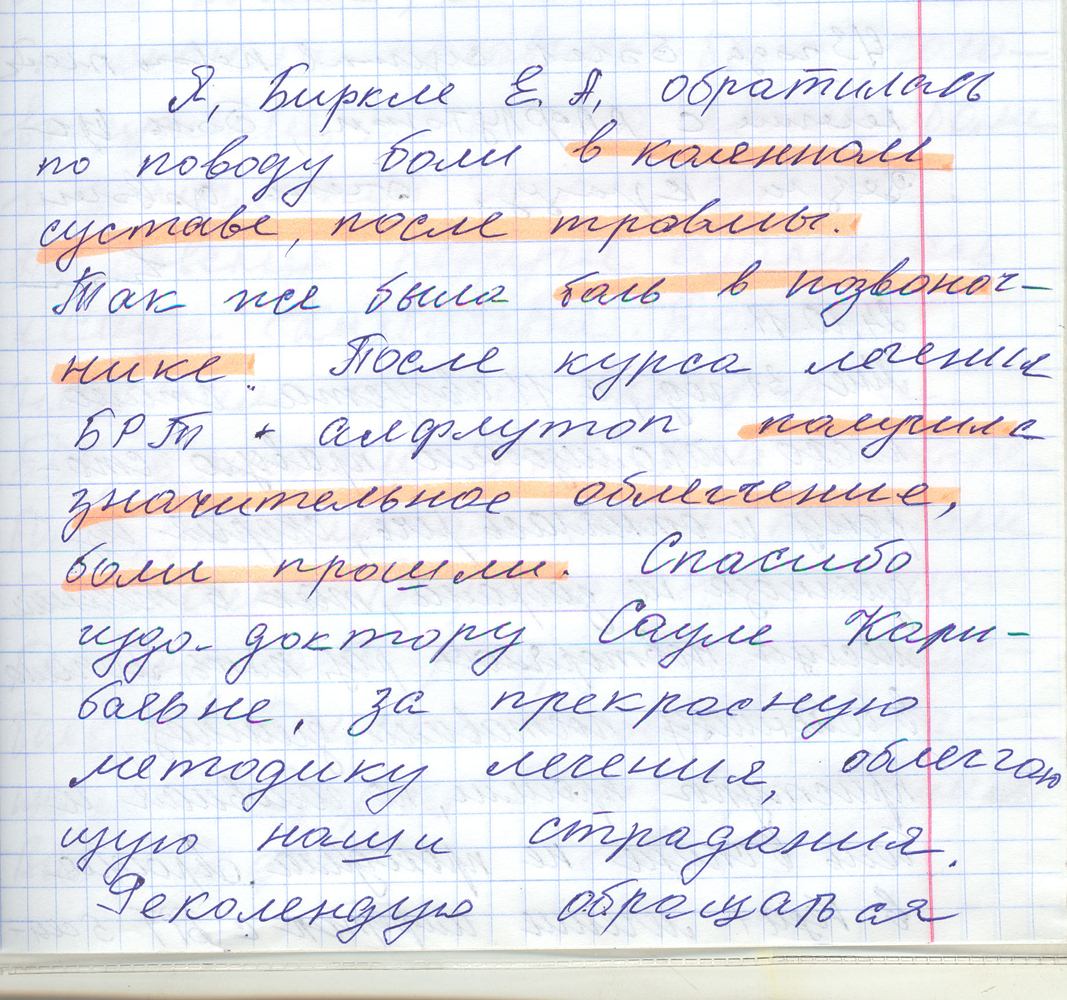 Я, Биркле Е. А, обратилась
по поводу боли в коленном
суставе, после травмы.
Так же была боль в позвоноч-
нике. После курса лечения
БРТ + алфлутоп получила
значительное облегчение,
боли прошли. Спасибо
чудо-доктору Сауле Кари-
баевне, за прекрасную
методику лечения, облегчаю
щую наши страдания.
Рекомендую обращаться